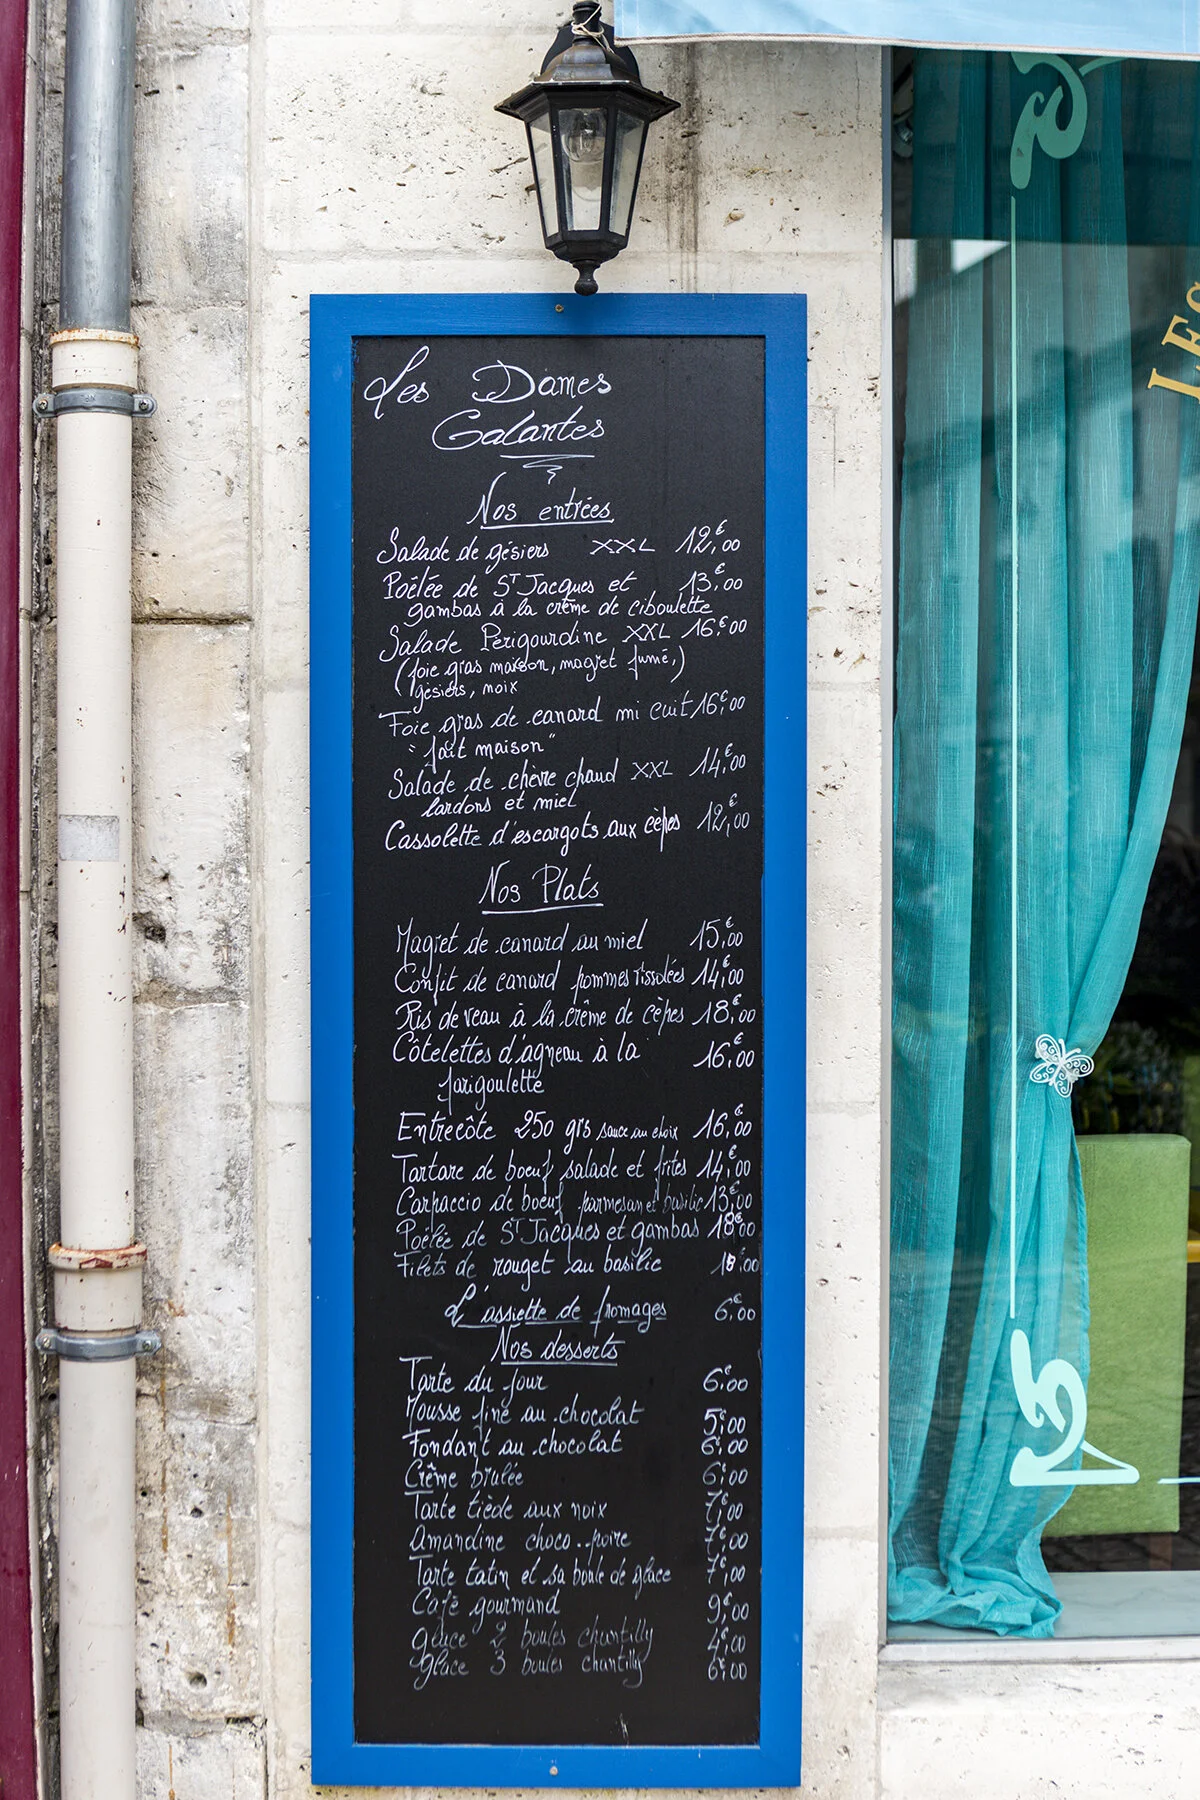 Les Dames
Galantes
Nos entrées
Salade de gésiers XXL 12,€00
Poêlée de ST Jacques et 13,€00
gambas à la crème de ciboulette
Salade Périgourdine XXL 16,€00
(foie gras maison, magret fumé,)
gésiers, noix
Foie gras de canard mi cuit 16,€00
"fait maison"
Salade de chèvre chaud XXL 14,€00
lardons et miel
Cassolette d'escargots aux cèpes 12,€00
Nos Plats
Magret de canard au miel 15,€00
Confit de canard pommes rissolées 14,€00
Ris de veau à la crème de cèpes 18,€00
Côtelettes d'agneau à la 16,€00
farigoulette
Entrecôte 250 grs sauce au choix 16,€00
Tartare de boeuf salade et frites 14,€00
Carpaccio de boeuf parmesan et basilic 13,€00
Poêlée de ST Jacques et gambas 18€00
Filets de rouget au basilic
L'assiette de fromages 6,€00
Nos desserts
Tarte du jour 6,€00
Mousse fine au chocolat 5,€00
Fondant au chocolat 6,€00
Crême brulée 6,€00
Tarte tiède aux noix 7,€00
Amandine choco..poire 7,€00
Tarte tatin et sa boule de glace 7,€00
Café gourmand 9,€00
glace 2 boules chantilly 4,€00
glace 3 boules chantilly 6,€00
LES